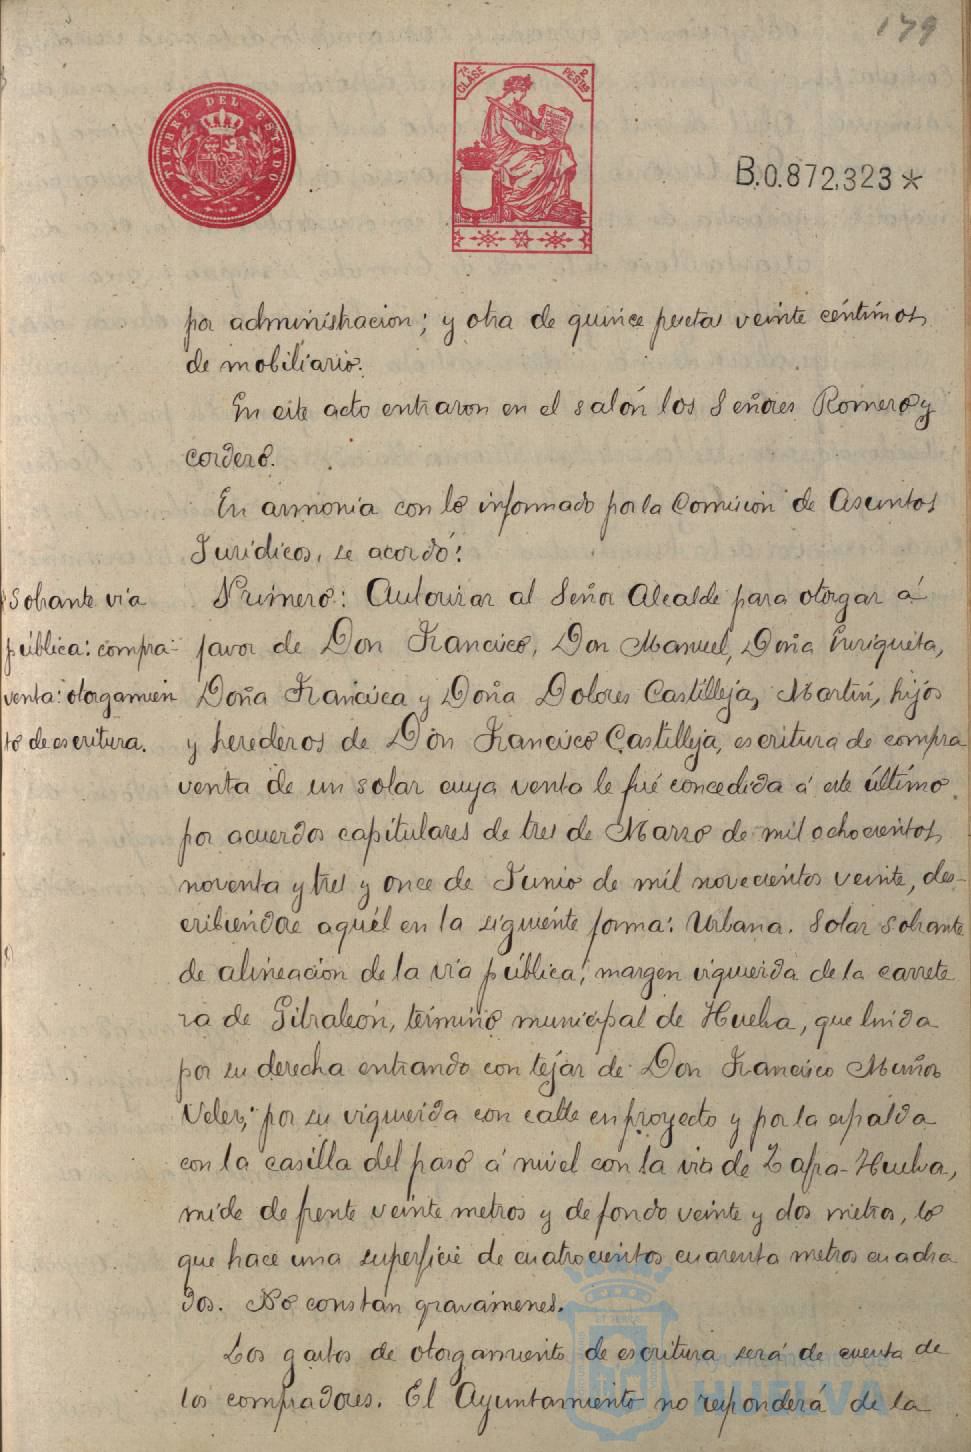 179
TIMBRE DEL ESTADO
7ª CLASE 2 PESTAS
B.0.872,323 *
por administracion; y otra de quince pesetas veinte céntimos
de mobiliario.
En este acto entraron en el salón los Señores Romero y
Cordero.
En armonía con lo informado por la Comisión de Asuntos
Jurídicos, se acordó:
Sobrante vía
pública: compra-
venta: otorgamien
to de escritura.
Primero: Autorizar al Señor Alcalde para otorgar á
favor de Don Francisco, Don Manuel, Doña Enriqueta,
Doña Francisca y Doña Dolores Castilleja, Martín, hijos
y herederos de Don Francisco Castilleja, escritura de compra
venta de un solar cuya venta le fué concedida á este último
por acuerdos capitulares de tres de Marzo de mil ochocientos
noventa y tres y once de Junio de mil novecientos veinte, des-
cribiéndose aquél en la siguiente forma: Urbana. Solar sobrante
de alineación de la vía pública, margen izquierda de la carrete
ra de Gibraleón, término municipal de Huelva, que linda
por su derecha entrando con tejar de Don Francisco Muñoz
Velez; por su izquierda con calle en proyecto y por la espalda
con la casilla del paso á nivel con la via de Zafra-Huelva,
mide de frente veinte metros y de fondo veinte y dos metros, lo
que hace una superficie de cuatrocientos cuarenta metros cuadra
dos. No constan gravámenes.
Los gastos de otorgamiento de escritura será de cuenta de
los compradores. El Ayuntamiento no responderá de la
Ayuntamiento de
HUELVA